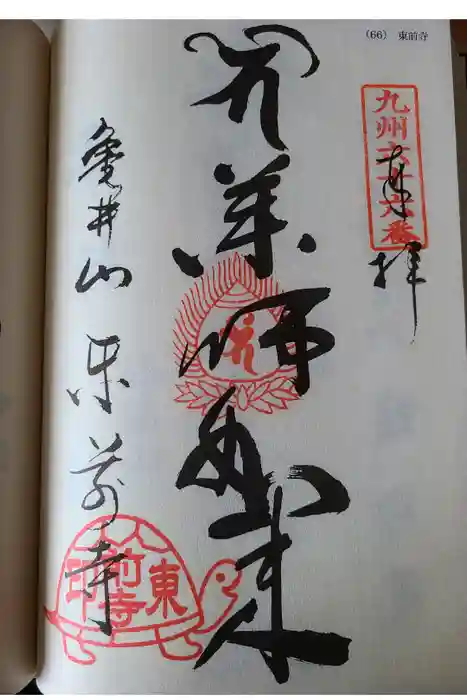 (66) 東前寺
九州六十六番
奉拝
薬師如来
亀井山 東前寺
東前寺印